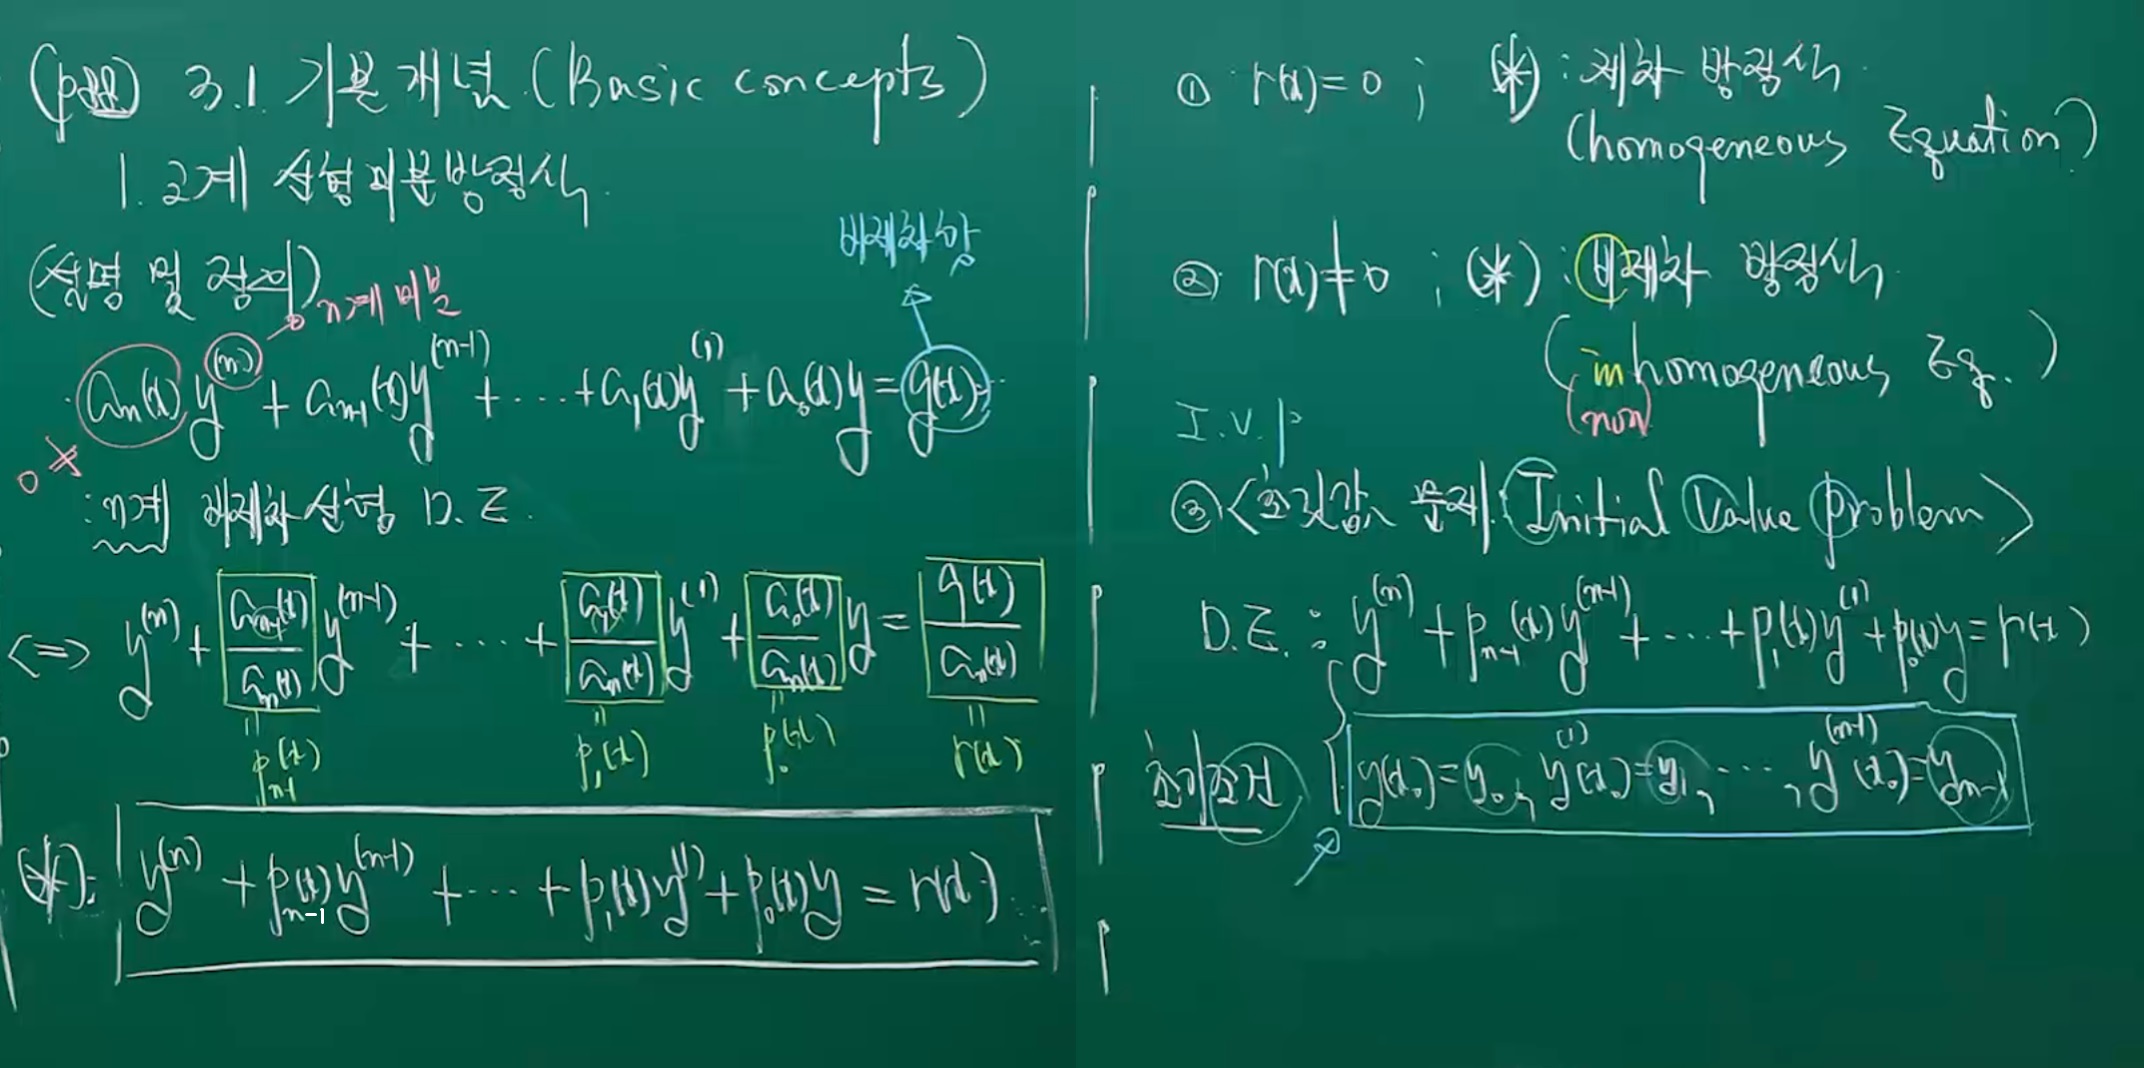 3.1 기본개념 (Basic concepts)
1. 2계 선형미분방정식.
(설명 및 정의)
n계 미분
비제차항
aₙ(x) y⁽ⁿ⁾ + aₙ₋₁(x) y⁽ⁿ⁻¹⁾ + ⋯ + a₁(x) y⁽¹⁾ + a₀(x) y = g(x)
0 ≠
: n계 비제차 선형 D.E.
<=> y⁽ⁿ⁾ + aₙ₋₁(x)/aₙ(x) y⁽ⁿ⁻¹⁾ + ⋯ + a₁(x)/aₙ(x) y⁽¹⁾ + a₀(x)/aₙ(x) y = g(x)/aₙ(x)
॥ pₙ₋₁(x) ॥ p₁(x) ॥ p₀(x) ॥ r(x)
(*): y⁽ⁿ⁾ + pₙ₋₁(x) y⁽ⁿ⁻¹⁾ + ⋯ + p₁(x) y⁽¹⁾ + p₀(x) y = r(x)
① r(x) = 0 ; (*) : 제차 방정식.
(homogeneous Equation)
② r(x) ≠ 0 ; (*) : 비제차 방정식.
(inhomogeneous Eq.)
(non)
I.V.P
③ <초깃값 문제. Initial Value problem>
D.E. : y⁽ⁿ⁾ + pₙ₋₁(x) y⁽ⁿ⁻¹⁾ + ⋯ + p₁(x) y⁽¹⁾ + p₀(x) y = r(x)
초기조건 { y(x₀) = y₀, y⁽¹⁾(x₀) = y₁, ⋯, y⁽ⁿ⁻¹⁾(x₀) = yₙ₋₁